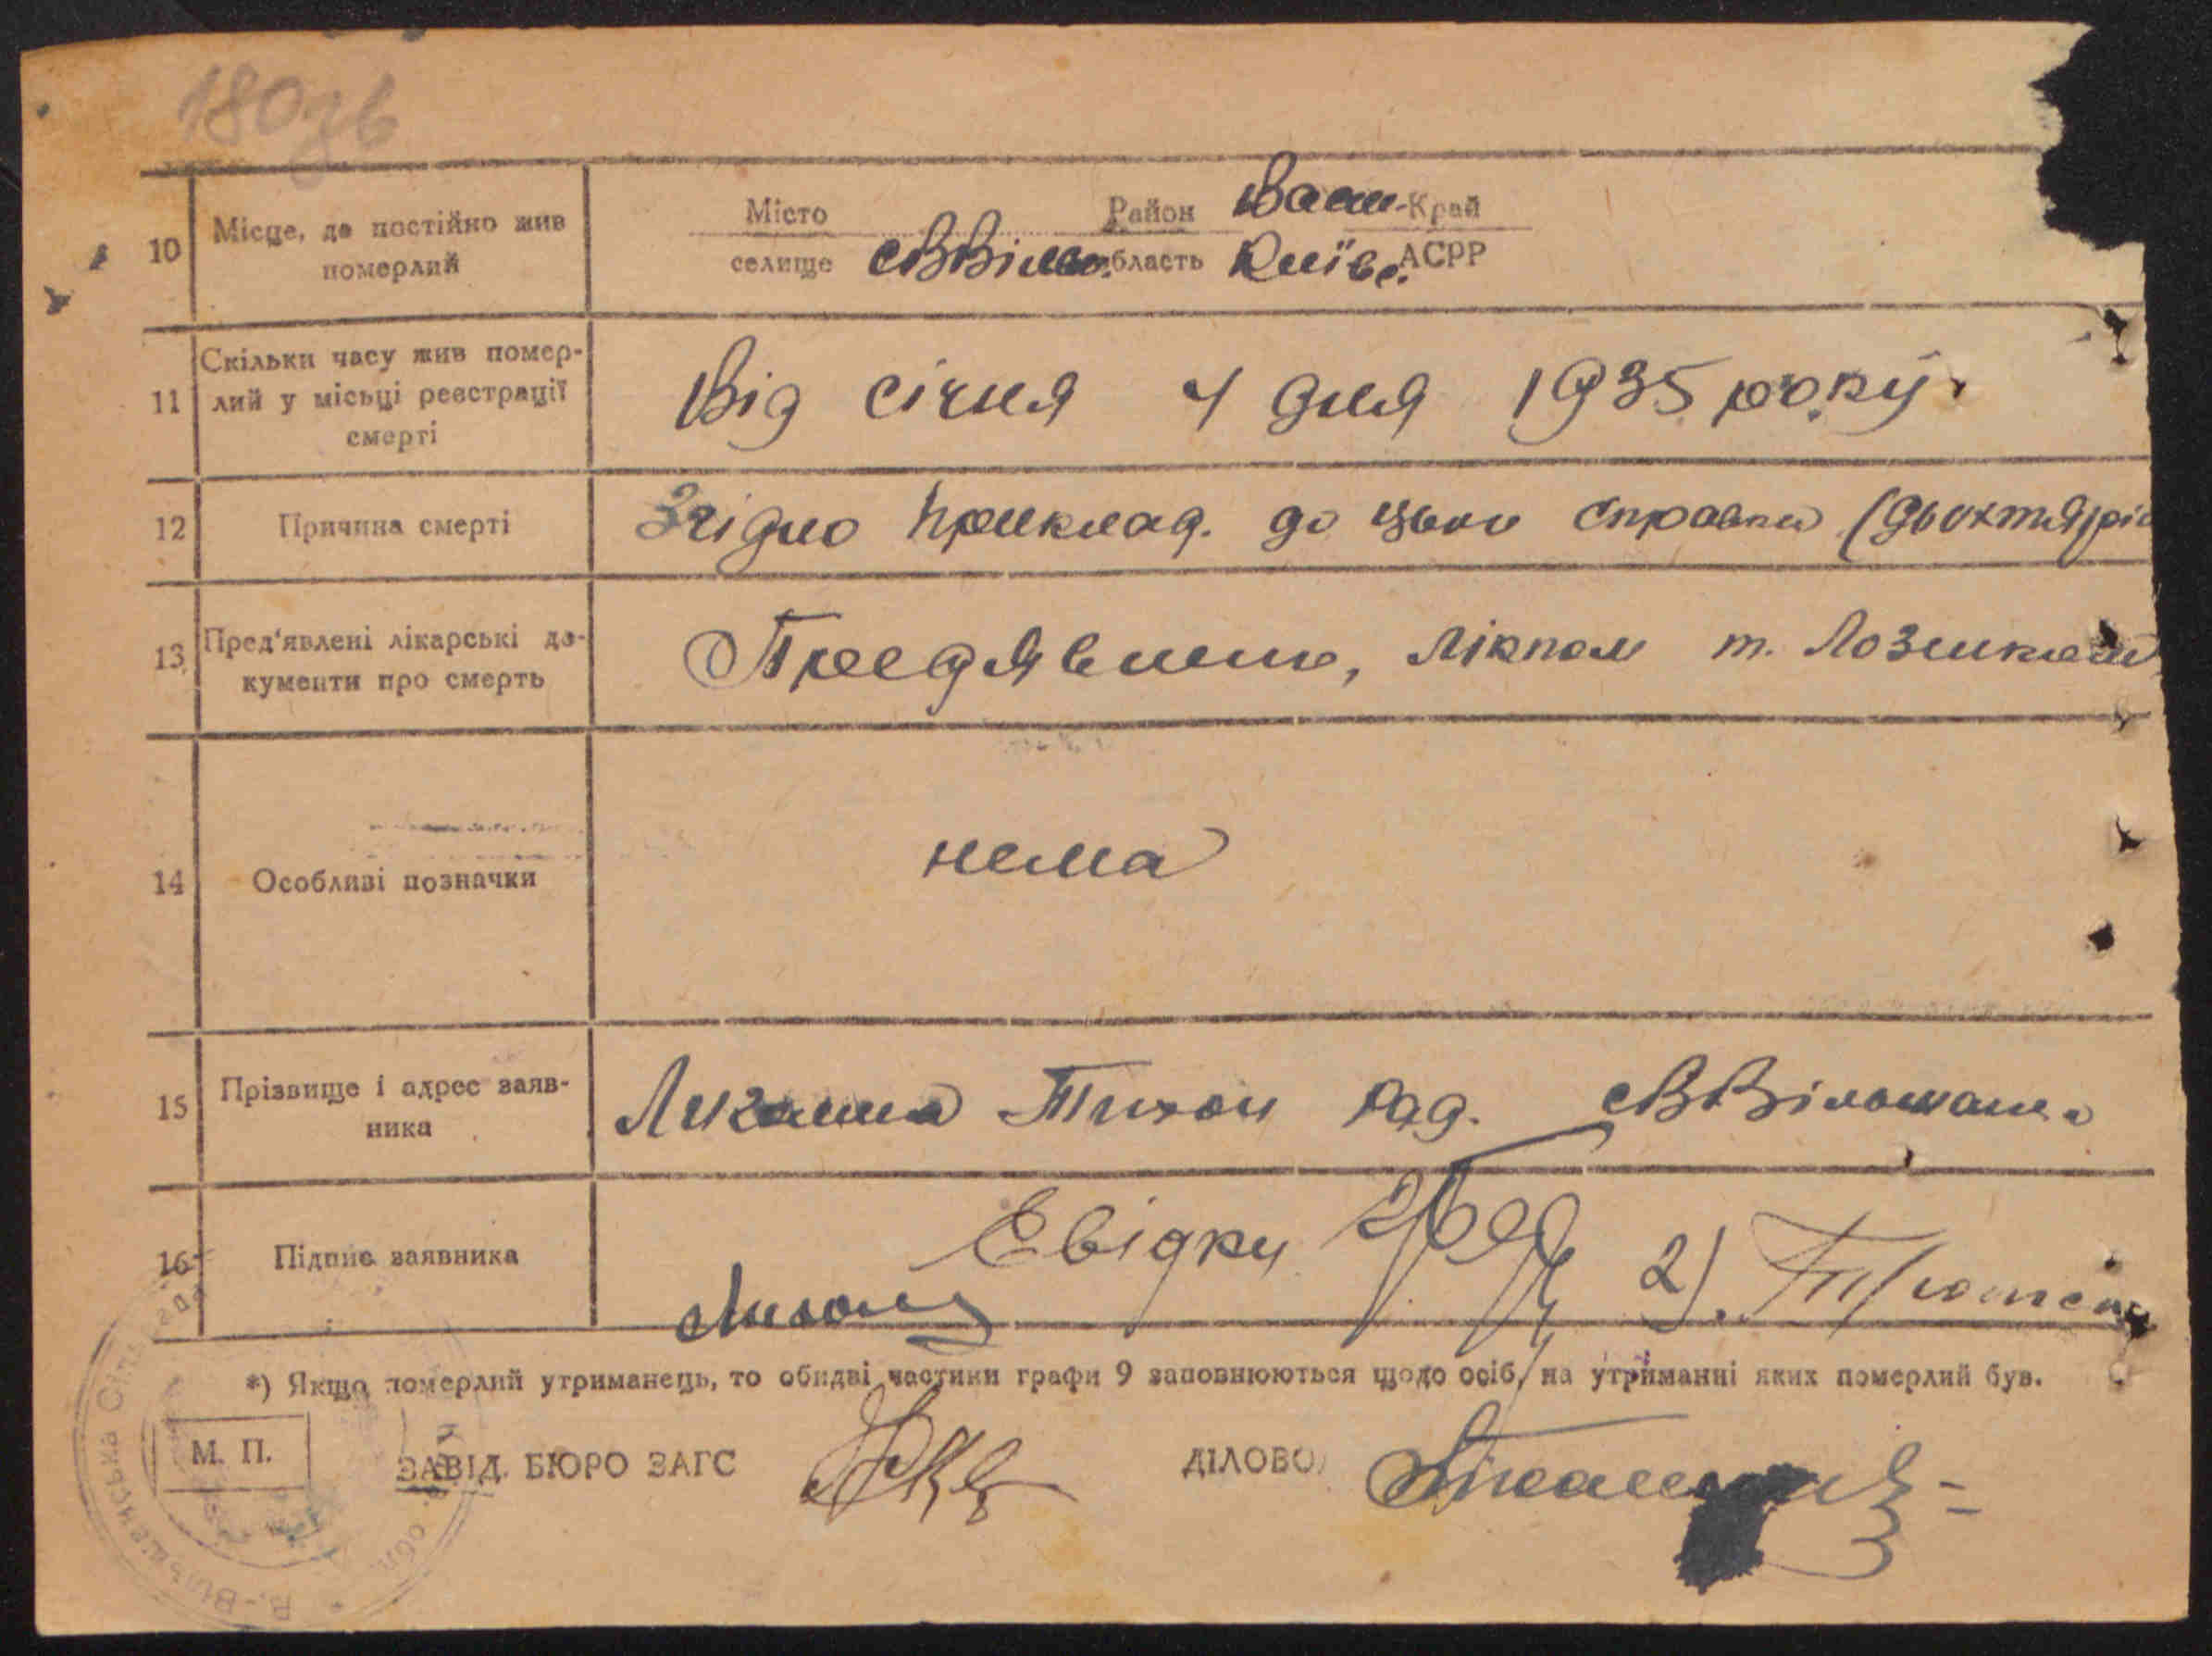 180зв
10 Місце, де постійно жив померлий
Місто Район Васи- Край
селище сВВільш. область Київс. АСРР
11 Скільки часу жив помер-
лий у місьці реєстрації
смерті
Від січня 4 дня 1935 року.
12 Причина смерті
Згідно Приклад. до цього справки (
13 Пред'явлені лікарські до-
кументи про смерть
Предявлено, лікпом т.
14 Особливі позначки
нема
15 Прізвище і адрес заяв-
ника
Тихон рад. сВВільшанка
16 Підпис заявника
Свідки 2).
*) Якщо померлий утриманець, то обидві частини графи 9 заповнюються щодо осіб, на утриманні яких померлий був.
М. П.
ЗАВІД. БЮРО ЗАГС ДІЛОВОД